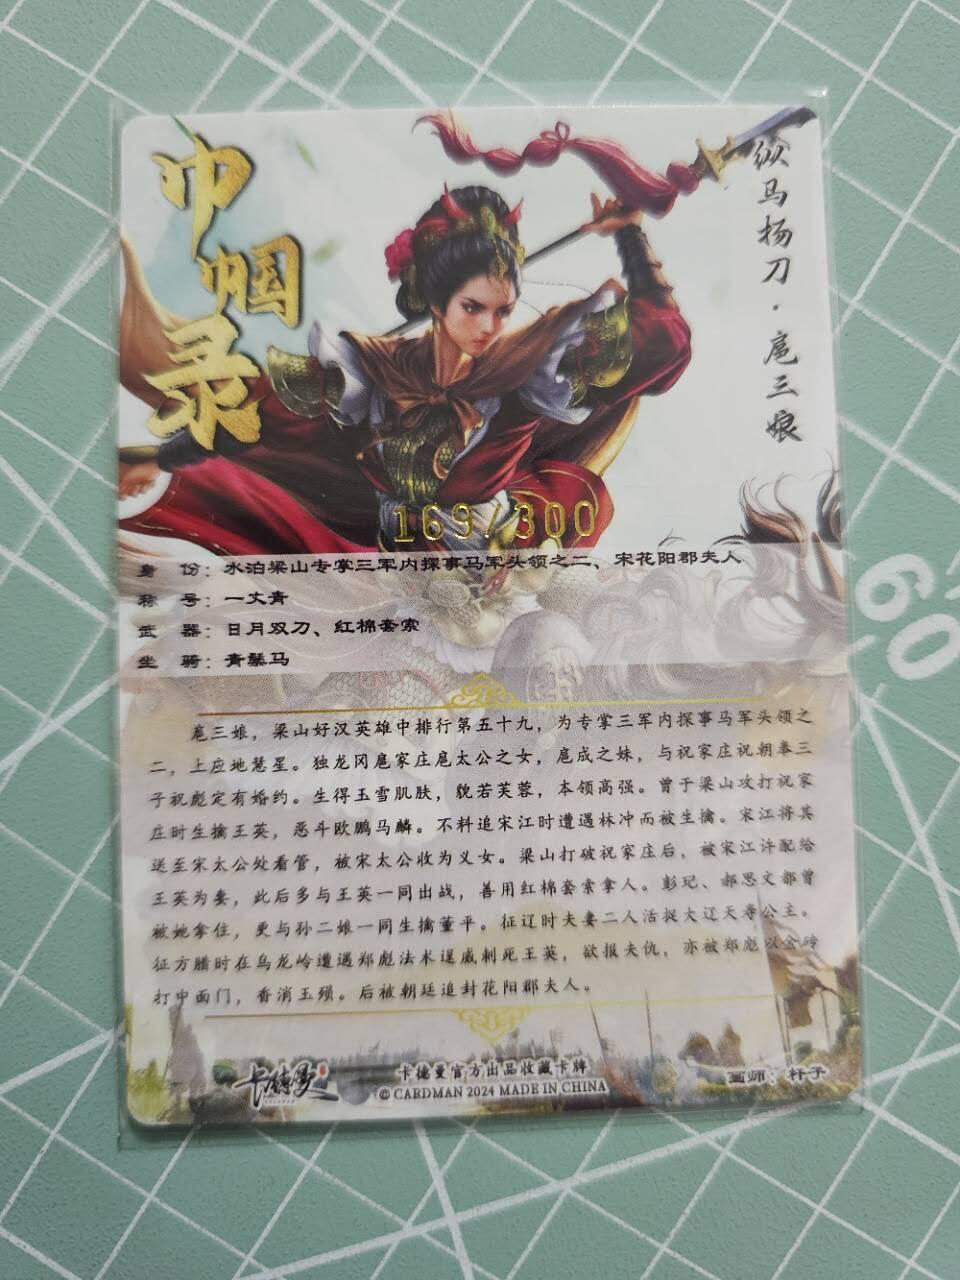 巾帼录
纵马扬刀·扈三娘
169/300
身 份：水泊梁山专掌三军内探事马军头领之二、宋花阳郡夫人
称 号：一丈青
武 器：日月双刀、红棉套索
坐 骑：青鬃马
扈三娘，梁山好汉英雄中排行第五十九，为专掌三军内探事马军头领之
二，上应地慧星。独龙冈扈家庄扈太公之女，扈成之妹，与祝家庄祝朝奉三
子祝彪定有婚约。生得玉雪肌肤，貌若芙蓉，本领高强。曾于梁山攻打祝家
庄时生擒王英，恶斗欧鹏马麟。不料追宋江时遭遇林冲而被生擒。宋江将其
送至宋太公处看管，被宋太公收为义女。梁山打破祝家庄后，被宋江许配给
王英为妻，此后多与王英一同出战，善用红棉套索拿人。彭玘、郝思文都曾
被她拿住，更与孙二娘一同生擒董平。征辽时夫妻二人活捉大辽天寿公主。
征方腊时在乌龙岭遭遇郑彪法术逞威刺死王英，欲报夫仇，亦被郑彪以金砖
打中面门，香消玉殒。后被朝廷追封花阳郡夫人。
卡德曼
卡德曼官方出品收藏卡牌
© CARDMAN 2024 MADE IN CHINA
画师：杆子
60